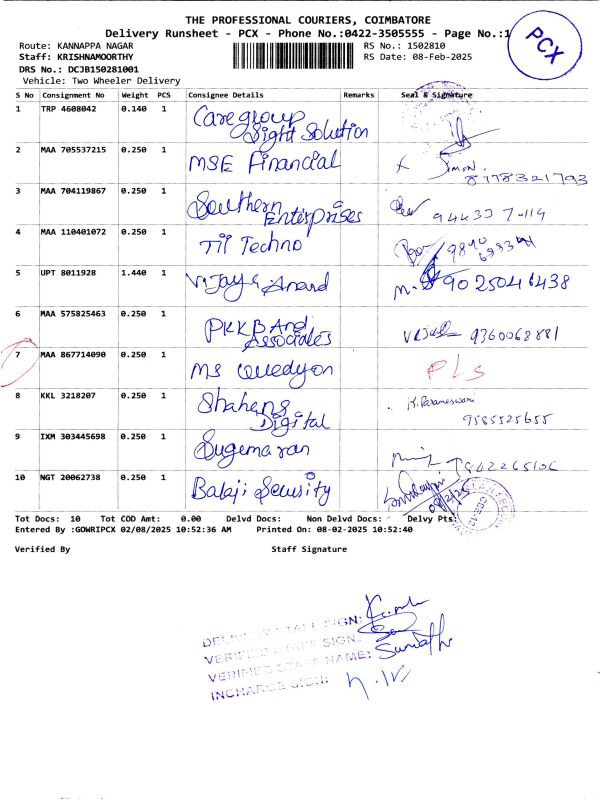 THE PROFESSIONAL COURIERS, COIMBATORE
Delivery Runsheet - PCX - Phone No.:0422-3505555 - Page No.:1
PCX
Route: KANNAPPA NAGAR
RS No.: 1502810
Staff: KRISHNAMOORTHY
RS Date: 08-Feb-2025
DRS No.: DCJB150281001
Vehicle: Two Wheeler Delivery
S No Consignment No Weight PCS Consignee Details Remarks Seal & Signature
1 TRP 4608042 0.140 1 Care group
Sight Solution
2 MAA 705537215 0.250 1 MSE Financial
Simon
8178321793
3 MAA 704119867 0.250 1 Southern
Enterprises
4 MAA 110401072 0.250 1 Tip Techno
5 UPT 8011928 1.440 1 Vijay & Anand 9025046438
6 MAA 575825463 0.250 1 PKKB And
Associates 9360068881
7 MAA 867714090 0.250 1 Ms PLS
8 KKL 3218207 0.250 1 Shahens
Digital
K. Parameswari
9585525655
9 IXM 303445698 0.250 1 Sugemaran
10 NGT 20062738 0.250 1 Balaji Security
08/2/25
Tot Docs: 10 Tot COD Amt: 0.00 Delvd Docs: Non Delvd Docs: Delvy Pts:
Entered By :GOWRIPCX 02/08/2025 10:52:36 AM Printed On: 08-02-2025 10:52:40
Verified By Staff Signature
DELIVERY STAFF SIGN:
VERIFIED STAFF SIGN:
VERIFIED STAFF NAME:
INCHARGE SIGN: